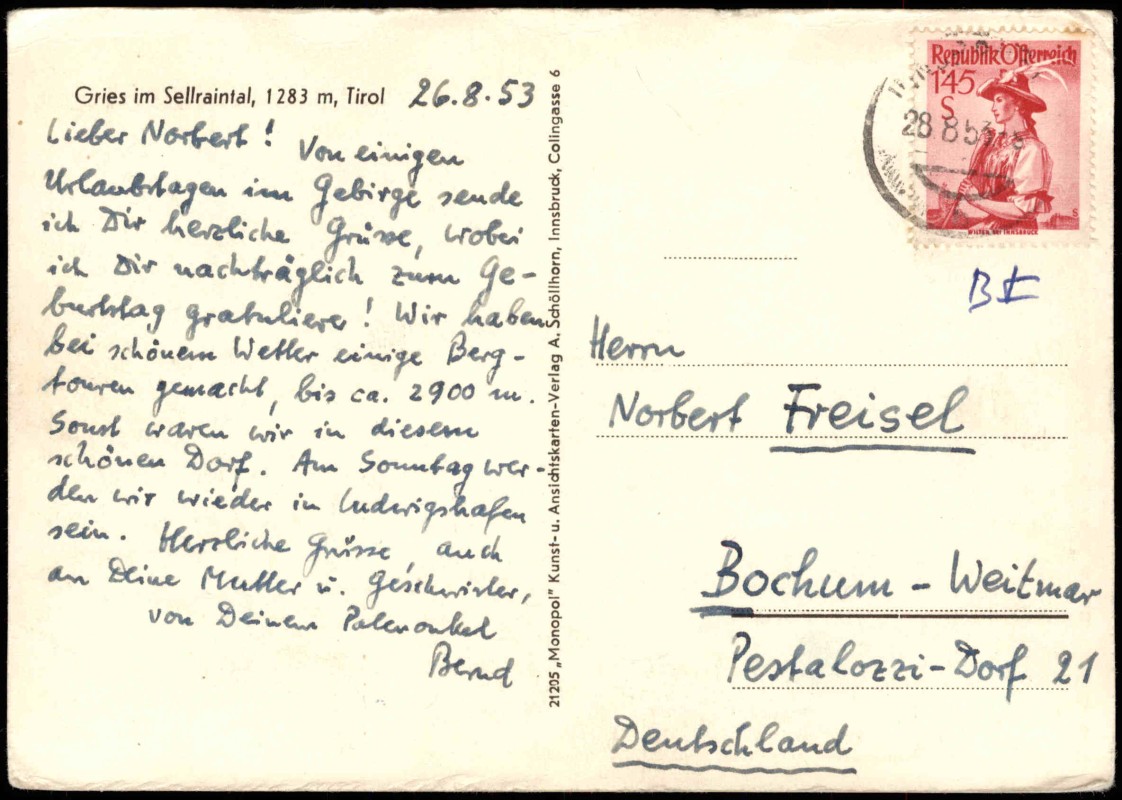 Gries im Sellraintal, 1283 m, Tirol 26.8.53
Lieber Norbert!
Von einigen
Urlaubstagen im Gebirge sende
ich Dir herzliche Grüsse, wobei
ich Dir nachträglich zum Ge-
burtstag gratuliere! Wir haben
bei schönem Wetter einige Berg-
touren gemacht, bis ca. 2900 m.
Sonst waren wir in diesem
schönen Dorf. Am Sonntag wer-
den wir wieder in Ludwigshafen
sein. Herzliche Grüsse, auch
an Deine Mutter u. Geschwister,
von Deinem Patenonkel
Bernd
21205 „Monopol" Kunst- u. Ansichtskarten-Verlag A. Schöllhorn, Innsbruck, Colingasse 6
Republik Österreich
145
S
WILTEN BEI INNSBRUCK
28 8 53
Herrn
Norbert Freisel
Bochum - Weitmar
Pestalozzi-Dorf 21
Deutschland